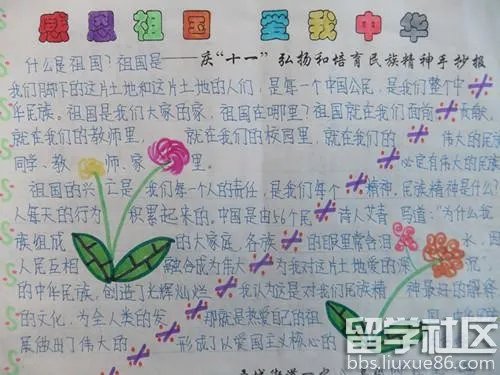 感恩祖国 爱我中华
——庆"十一"弘扬和培育民族精神手抄报
什么是祖国？祖国是
我们脚下的这片土地和这片土地的人们，是每一个中国公民，是我们整个中
华民族。祖国是我们大家的家，祖国在哪里？祖国就在我们面前 贡献，
就在我们的教师里， 就在我们的校园里，就在我们的 伟大的民族
同学、教师、家 里。 必定有伟大的民族
祖国的兴 是我们每一个人的责任，是我们每个 精神，民族精神是什么？
人每天的行为 积累起来的，中国是由56个民 诗人艾青 ："为什么我
族组成 的大家庭，各族 的眼里常含泪水，因
人民互相 融合成为伟大 为我对这片土地爱的深
的中华民族，创造了光辉灿烂 我认为这是对我们民族精神最好的解释
的文化，为全人类的发 那就是热爱自己的祖
展做出了伟大的 形成了以爱国主义核心的
留学社区
bbs.liuxue86.com